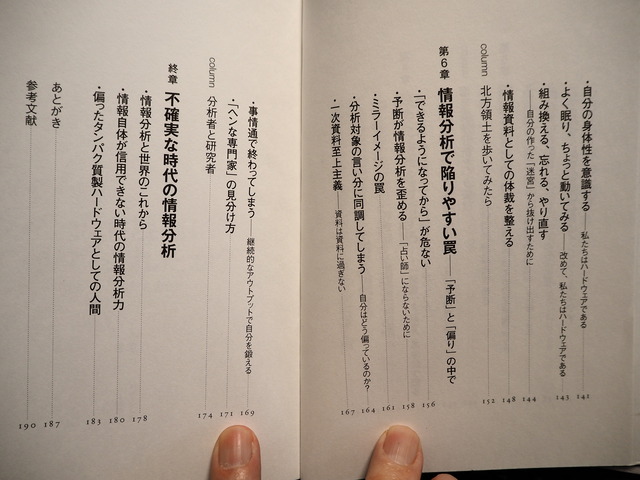 ・自分の身体性を意識する——私たちはハードウェアである 141
・よく眠り、ちょっと動いてみる——改めて、私たちはハードウェアである 143
・組み換える、忘れる、やり直す
——自分の作った「迷宮」から抜け出すために 144
・情報資料としての体裁を整える 148
column 北方領土を歩いてみたら 152
第6章 情報分析で陥りやすい罠——「予断」と「偏り」の中で
・「できるようになってから」が危ない 156
・予断が情報分析を歪める——「占い師」にならないために 158
・ミラーイメージの罠 161
・分析対象の言い分に同調してしまう——自分はどう偏っているのか? 164
・一次資料至上主義——資料は資料に過ぎない 167
・事情通で終わってしまう——継続的なアウトプットで自分を鍛える 169
・「ヘンな専門家」の見分け方 171
column 分析者と研究者 174
終章 不確実な時代の情報分析
・情報分析と世界のこれから 178
・情報自体が信用できない時代の情報分析力 180
・偏ったタンパク質製ハードウェアとしての人間 183
あとがき 187
参考文献 190